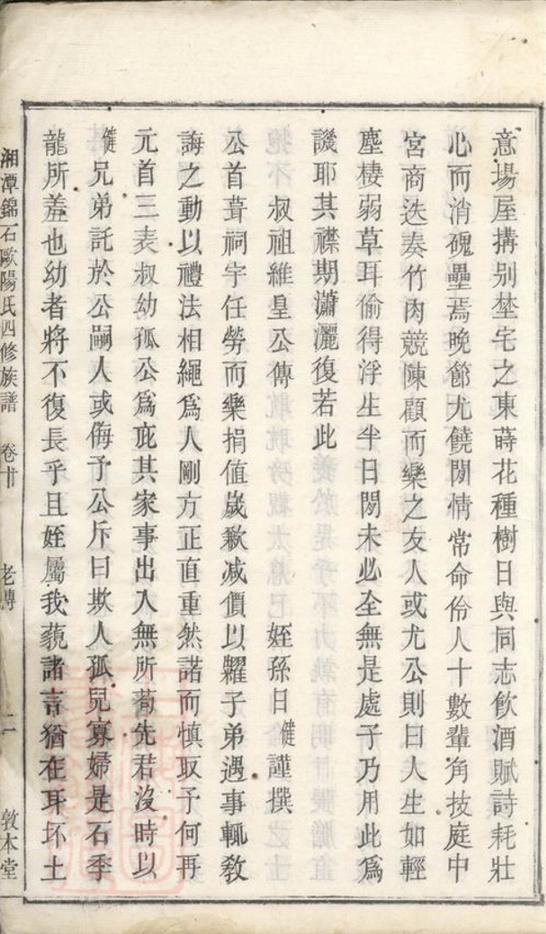 意場屋搆別墅宅之東蒔花種樹日與同志飲酒賦詩耗壯
心而消磈壘焉晚節尤饒閒情常命伶人十數輩角技庭中
宮商迭奏竹肉競陳顧而樂之友人或尤公則曰人生如輕
塵棲弱草耳偷得浮生半日閒未必全無是處子乃用此為
譏耶其襟期瀟灑復若此
叔祖維皇公傳
姪孫日健謹撰
公首葺祠宇任勞而樂捐值歲歉减價以糶子弟遇事輒教
誨之動以禮法相繩為人剛方正直重然諾而慎取予何再
元首三表叔幼孤公為庇其家事出入無所苟先君沒時以
健兄弟託於公嗣人或侮予公斥曰欺人孤兒寡婦是石季
龍所羞也幼者將不復長乎且姪屬我藐諸言猶在耳坏土
湘潭錦石歐陽氏四修族譜
卷廿
老傳
二
敦本堂